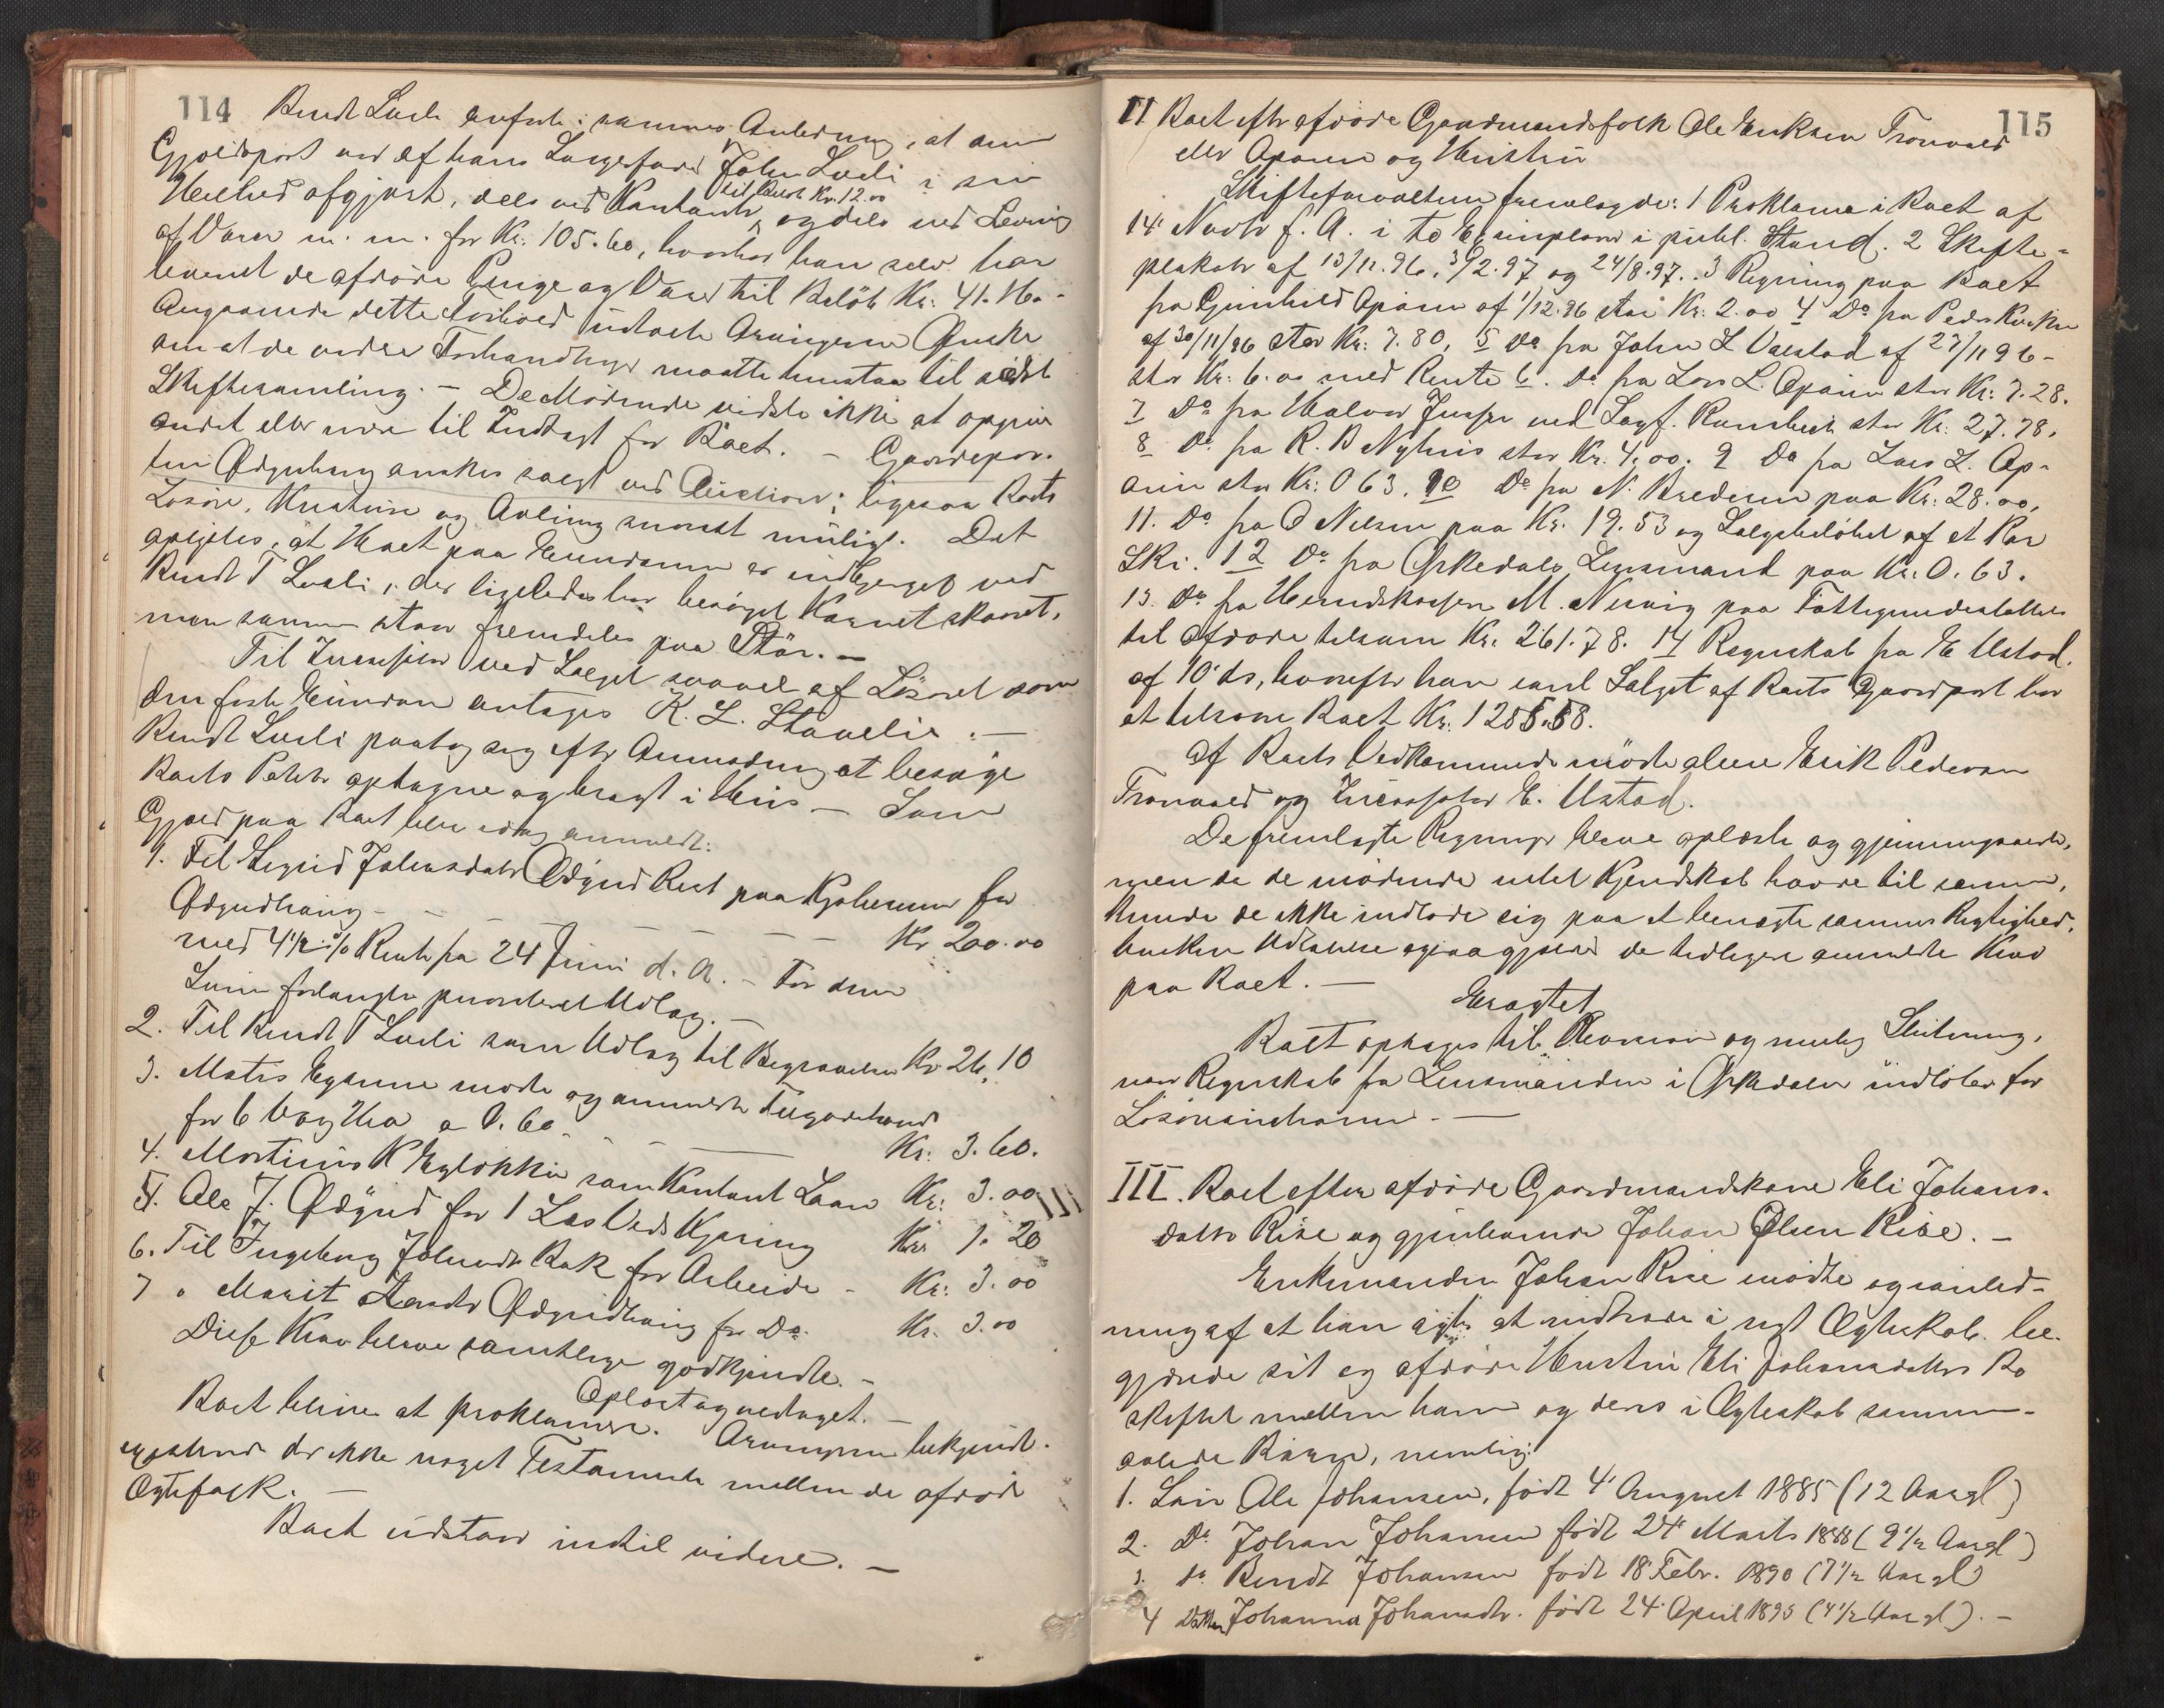 114
Bendt Lueli anførte i sammes Anledning, at den
Gjældspost var af hans Svigerfader John Lueli i sin
Helhed opgjort, dels ved Kontant til Rest Kr. 12.00 og dels ved Levering
af Varer m. m. for Kr. 105.60, hvorhos han selv har
leveret de afdøde Penge og Varer til Beløb Kr. 41.16.-
Angaaende dette Forhold udtalte Arvingerne Ønske
om at de videre Forhandlinger maatte henstaa til sidste
Skiftesamling. - De Mødende vidste ikke at opgive
andet eller mere til Indtægt for Boet. - Gaardepar-
ten Ødgudhaug ønskes solgt ved Auction; ligesaa Boets
Løsøre, Kreature og Avling snarest muligt. Det
oplystes, at Høet paa Eiendommen er indbjerget ved
Bendt T Lueli, der ligeledes har besørget Kornet skaaret,
men samme staar fremdeles paa Stør. -
Til Incassator ved Salget saavel af Løsøret som
den faste Eiendom antages K. L. Stavelie. -
Bendt Lueli paatog sig efter Anmodning at besørge
Boets Poteter optagne og bragt i Hus - Som
Gjæld paa Boet blev idag anmeldt:
1. Til Sigrid Johnsdatter Ødgud Rest paa Kjøbesum for
Ødgudhaug - - - - - Kr 200.00
med 4½ % Rente fra 24 Juni d. A. - For denne
Sum forlangtes prioriteret Udlæg. -
2. Til Bendt T Lueli som Udlæg til Begravelsen Kr 26,10
3. Mats Egganu mødte og anmeldte Tilgodehavende
for 6 Vog Hø a 0.60 - - Kr: 3.60.
4. Martinus K Egløkkin som Kontant Laan Kr: 3.00
5. Ole J. Ødgud for 1 Læs Veds Kjøring Kr 1.20
6. Til Ingeborg Johnsdtr Bak for Arbeide - Kr: 3.00
7 " Marit Larsdtr Ødgudhaug for Do. Kr. 3.00
Disse Krav bleve samtlige godkjendte. -
Oplæst og vedtaget. -
Boet bliver at proklamere. Arvingerne bekjendt
existerer der ikke noget Testamente mellem de afdøde
Ægtefolk. -
Boet udstaar indtil videre. -
115
II Boet efter afdøde Gaardmandsfolk Ole Eriksen Tronvold
eller Opamn og Hustru
Skifteforvalteren fremlagde: 1 Proklama i Boet af
14' Novbr f. A. i to Exemplarer i publ. Stand. 2 Skifte-
plakater af 13/11.96, 3/2.97 og 24/8.97. 3 Regning paa Boet
fra Gunhild Opamn af 1/12.96 stor Kr. 2.00 4 Do fra Peder Kvikne
af 30/11/96 stor Kr: 7.80, 5 Do fra John L Valstad af 27/11 96 -
stor Kr: 6.00 med Rente 6. Do fra Lars L. Opamn stor Kr: 7.28.
7 Do fra Halvor Jensen ved Sagf. Rambech stor Kr: 27.78.
8 Do fra R. B Nyhus stor Kr. 4.00. 9 Do fra Lars L. Op-
amn stor Kr: 0 63. 10 Do fra N. Bredesen paa Kr: 28.00,
11. Do fra O Nilsen paa Kr. 19.53 og Salgsbeløbet af et Par
Ski. 12 Do fra Ørkedals Lensmand paa Kr: 0.63.
13. Do fra Herredskasserer M. Nervig paa Fattigunderstøttelse
til afdøde tilsam Kr: 261.78. 14 Regnskab fra E Ustad.
af 10' ds, hvorefter han ved Salget af Boets Gaardpart har
at tilsvare Boet Kr: 1255.58.
Af Boets Vedkommende mødte alene Erik Pedersen
Tronvold og Incassator E. Ustad.
De fremlagte Regninger bleve oplæste og gjennemgaaede,
men da de mødende intet Kjendskab havde til samme,
kunde de ikke indlade sig paa at benægte sammes Rigtighed,
hvilken Udtalelse ogsaa gjælder de tidligere anmeldte Krav
paa Boet. -
Eragtet
Boet optages til Revision og mulig Slutning,
naar Regnskab fra Lensmanden i Ørkedalen indløber for
Løsøreauctionen. -
III. Boet efter afdøde Gaardmandskone Eli Johans-
datter Rise og gjenlevende Johan Olsen Rise. -
Enkemanden Johan Rise mødte og i anled-
ning af at han agter at indtræde i nyt Ægteskab be-
gjærede sit og afdøde Hustru Eli Johansdatters Bo
skiftet mellem ham og deres i Ægteskab sammen-
avlede Børn, nemlig:
1. Søn Ole Johansen, født 4' August 1885 (12 Aargl)
2. Do Johan Johansen født 24' Marts 1888 (9½ Aargl)
3. do Bendt Johansen født 18' Febr. 1890 (7½ Aargl)
4 Datter Johanna Johansdtr. født 24' April 1893 (4½ Aargl). -